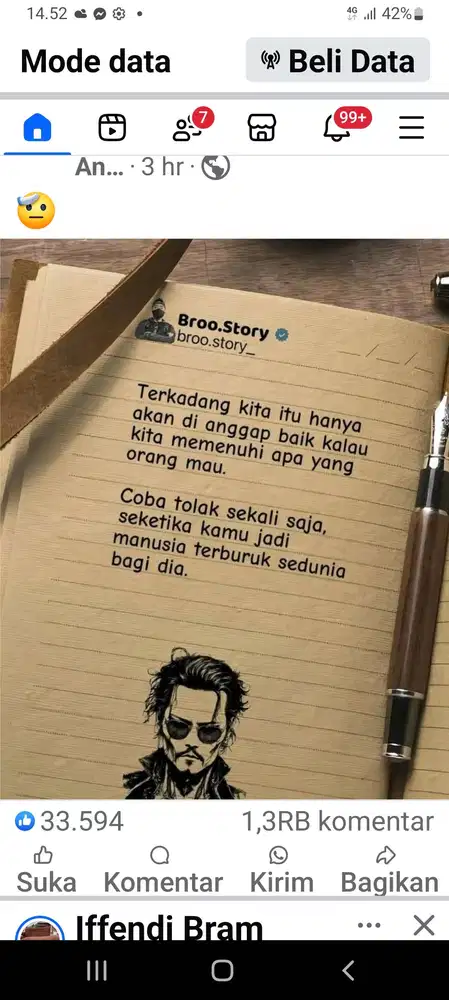 14.52
4G
42%
Mode data
Beli Data
7
99+
An... · 3 hr ·
Broo.Story
broo.story_
Terkadang kita itu hanya
akan di anggap baik kalau
kita memenuhi apa yang
orang mau.
Coba tolak sekali saja,
seketika kamu jadi
manusia terburuk sedunia
bagi dia.
33.594
1,3RB komentar
Suka
Komentar
Kirim
Bagikan
Iffendi Bram